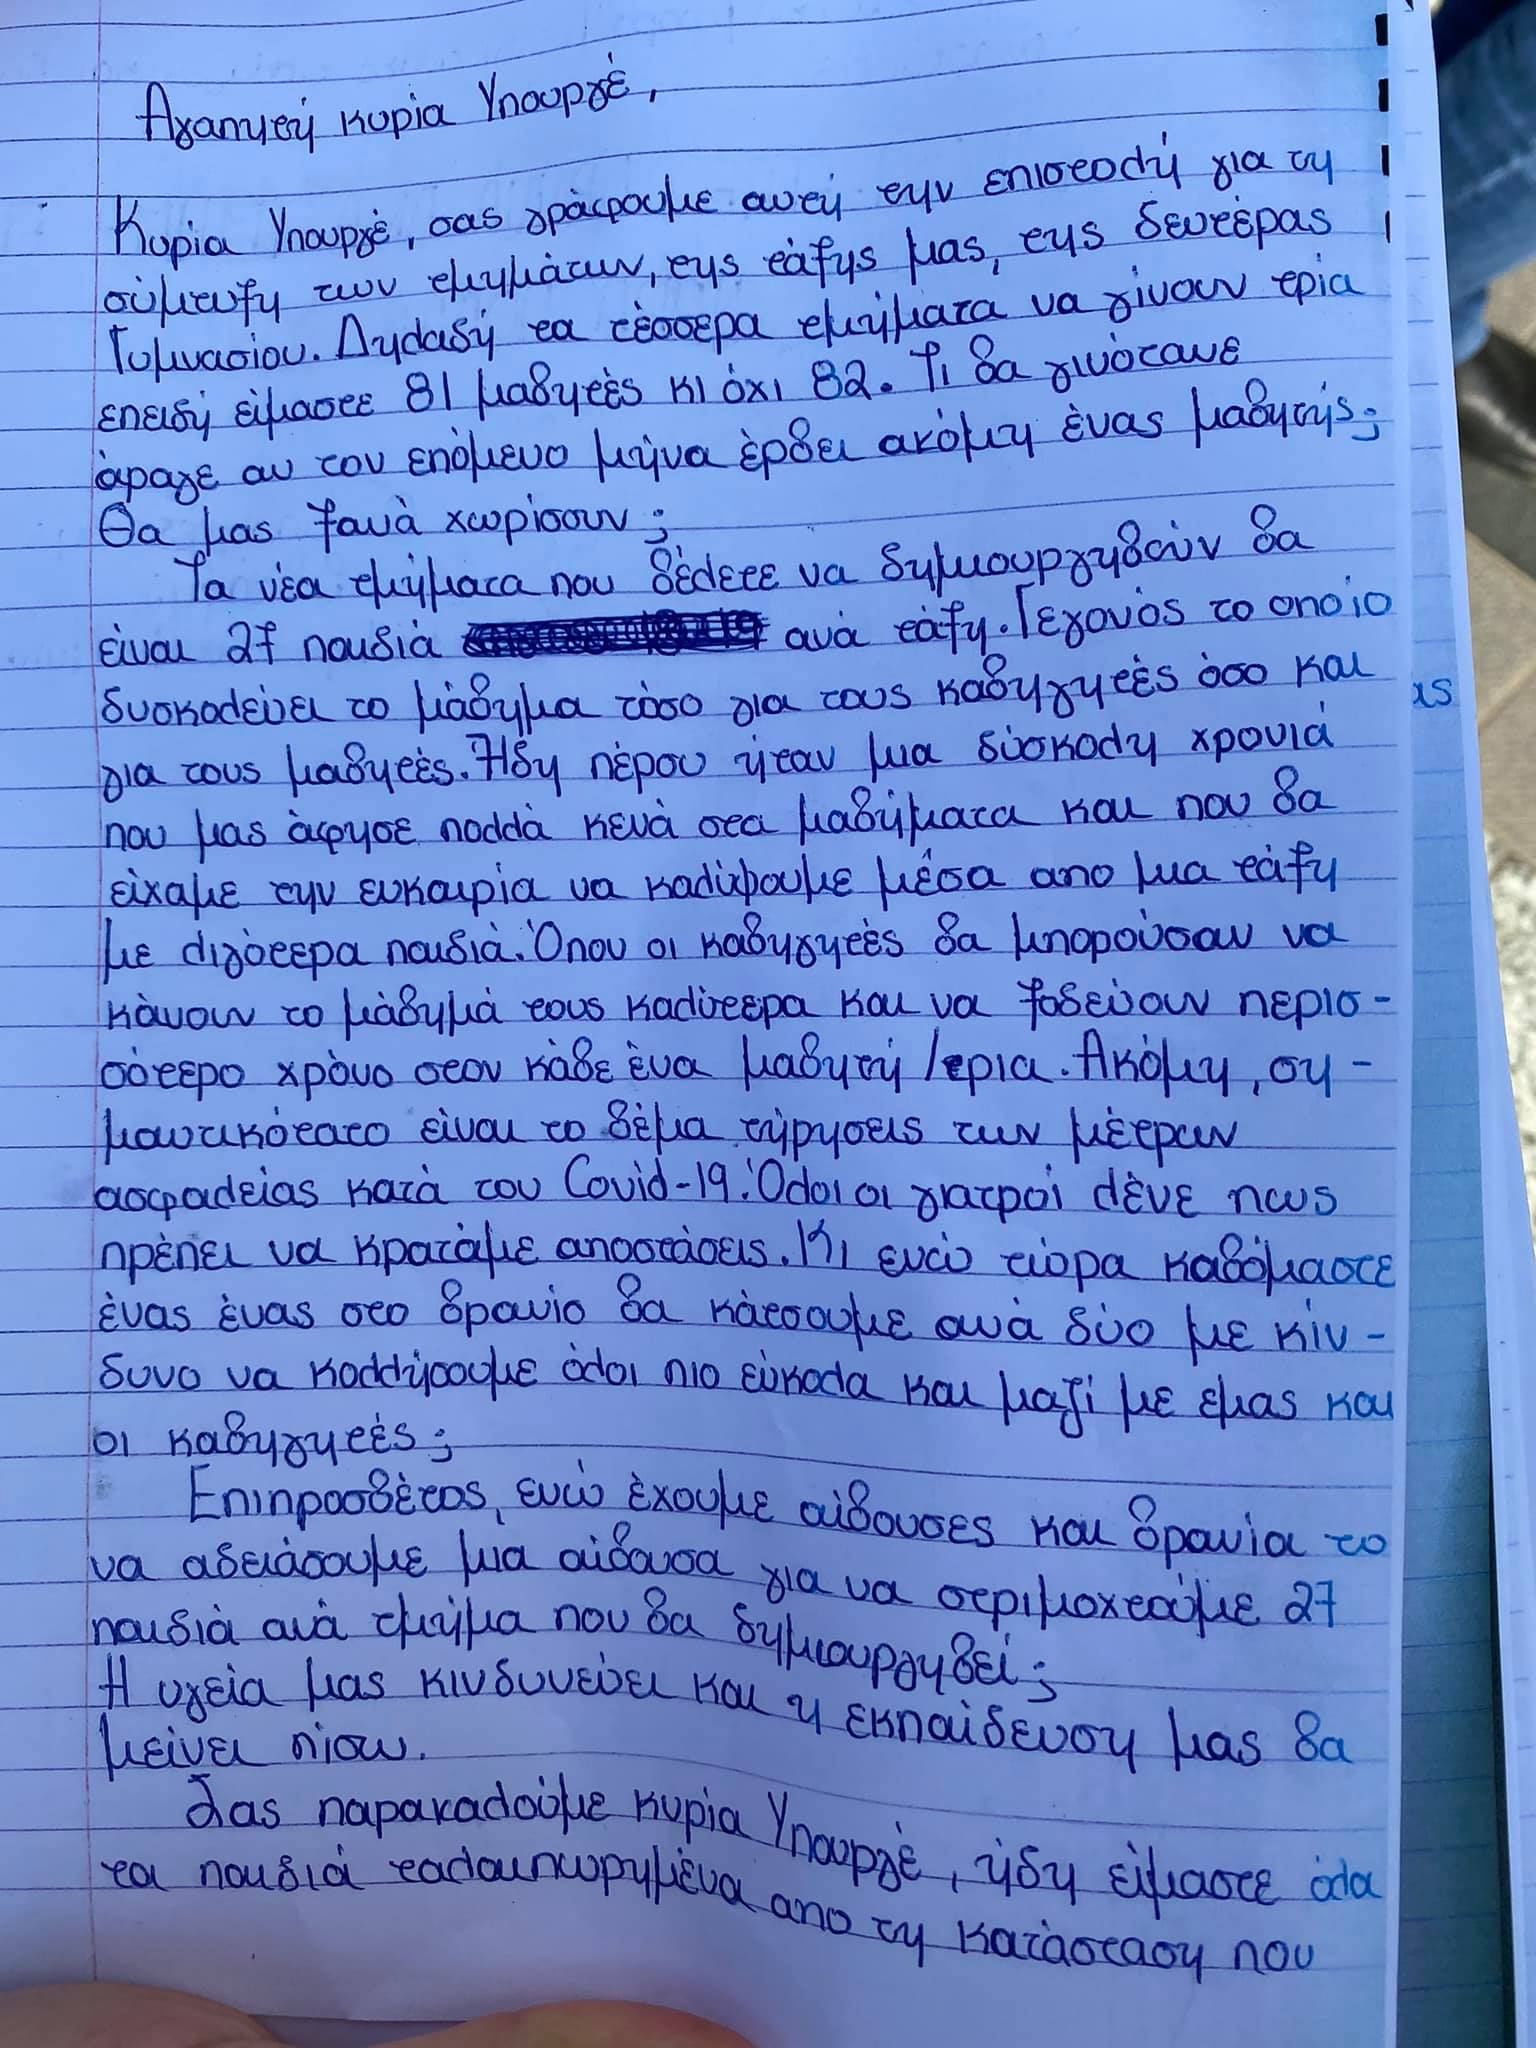 Αγαπητή κυρία Υπουργέ,
Κυρία Υπουργέ, σας γράφουμε αυτή την επιστολή για τη
σύμπτυξη των τμημάτων, της τάξης μας, της δευτέρας
Γυμνασίου. Δηλαδή τα τέσσερα τμήματα να γίνουν τρία
επειδή είμαστε 81 μαθητές κι όχι 82. Τι θα γινότανε
άραγε αν τον επόμενο μήνα έρθει ακόμη ένας μαθητής;
Θα μας ξανά χωρίσουν;
Τα νέα τμήματα που θέλετε να δημιουργηθούν θα
είναι 27 παιδιά ανά τάξη. Γεγονός το οποίο
δυσκολεύει το μάθημα τόσο για τους καθηγητές όσο και
για τους μαθητές. Ήδη πέρσυ ήταν μια δύσκολη χρονιά
που μας άφησε πολλά κενά στα μαθήματα και που θα
είχαμε την ευκαιρία να καλύψουμε μέσα απο μια τάξη
με λιγότερα παιδιά. Όπου οι καθηγητές θα μπορούσαν να
κάνουν το μάθημά τους καλύτερα και να ξοδεύουν περισ-
σότερο χρόνο στον κάθε ένα μαθητή/τρια. Ακόμη, ση-
μαντικότατο είναι το θέμα τήρησεις των μέτρων
ασφαλείας κατά του Covid-19. Όλοι οι γιατροί λένε πως
πρέπει να κρατάμε αποστάσεις. Κι ενώ τώρα καθόμαστε
ένας ένας στο θρανίο θα κάτσουμε ανά δύο με κίν-
δυνο να κολλήσουμε όλοι πιο εύκολα και μαζί με εμας και
οι καθηγητές;
Επιπροσθέτος, ενώ έχουμε αίθουσες και θρανία το
να αδειάσουμε μία αίθουσα για να στριμοχτούμε 27
παιδιά ανά τμήμα που θα δημιουργηθεί;
Η υγεία μας κινδυνεύει και η εκπαίδευση μας θα
μείνει πίσω.
Σας παρακαλούμε κυρία Υπουργέ, ήδη είμαστε όλα
τα παιδιά ταλαιπωρημένα απο τη κατάσταση που
ας